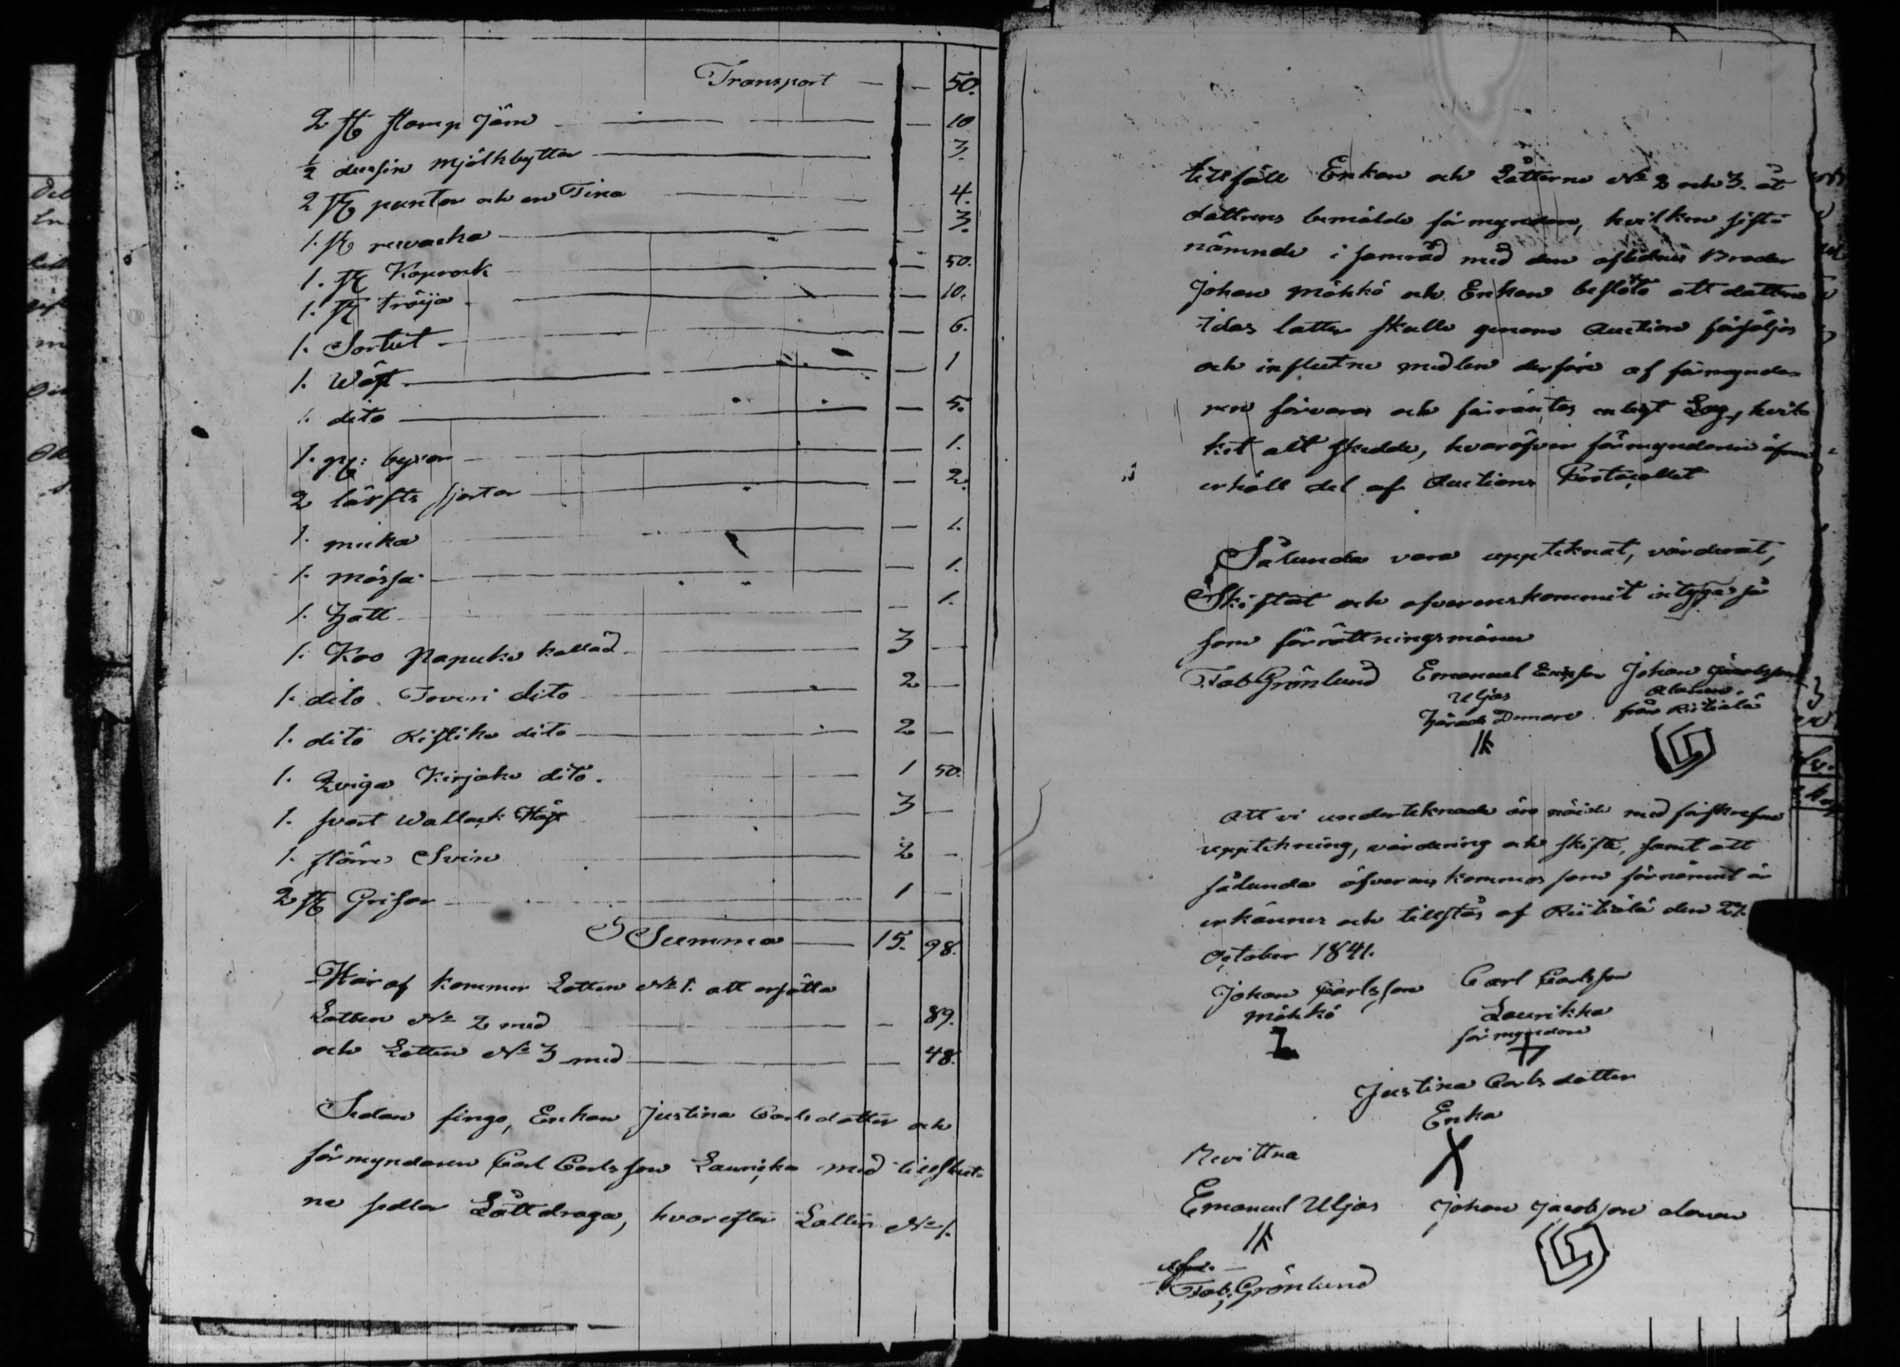 Transport — — 50.
2 st stamp Järn — — 10
½ dussin mjölkbyttor — 3.
2 st puntor och en Tina — 4.
1. st rewacka — — 3.
1. st Kaprock — — 50.
1. st tröija — — 10.
1. Sortut — — 6.
1. Wäst — — 1
1. dito — — 5.
1. pr: byxor — — 1.
2 lärfts skjortor — — 2.
1. mucka — — 1.
1. mössa — — 1.
1. Hatt — — 1.
1. Koo Papuko kallad — 3 —
1. dito Toveri dito — 2 —
1. dito Ristiko dito — 2 —
1. Qviga Kirjako dito. — 1 50.
1. svart Wallack Häst — 3 —
1. större Svin — 2 —
2 st Grisar — 1 —
Summa — 15. 98.
Häraf kommer Lotten No 1. att ersätta
Lotten No 2 med — — 89.
och Lotten No 3 med — — 48.
Sedan fingo, Enkan Justina Carlsdotter och
förmyndaren Carl Carlsson Laurikka med tillslut-
ne sedlar Lått draga, hvarefter Lotten No 1.
tillföll Enkan och Lotterne No 2 och 3. åt
dottrens bemälde förmyndare, hvilken sist-
nämnde i samråd med den aflidnes Broder
Johan Möhkö och Enkan beslöto att dottrens
lotter skulle genom Auction försäljas
och influtne medlen derföre af förmynda-
ren förvaras och förräntas enligt Lag, hvil-
ket allt skedde, hvaröfver förmyndaren äfven
erhöll del af Auctions Protocollet
Sålunda vara uppteknat, värderat,
Skiftat och öfverenskommit intyga så
som förrättningsmänner
F. Tab Grönlund Emanuel Ericsson Johan Jacobsson
Uljas Alanen
Härads Domare från Riitiälä
Att vi undertecknade äro nöjde med förskrefne
uppteckning, värdering och skifte, samt att
sålunda öfverenskommes som förnämnt är
erkännes och tillstås af Riitiälä den 27.
October 1841.
Johan Carlsson Carl Carlsson
Möhkö Laurikka
förmyndare
Justina Carlsdotter
Enka
Bevittna
Emanuel Uljas Johan Jacobsson Alanen
Tab. Grönlund